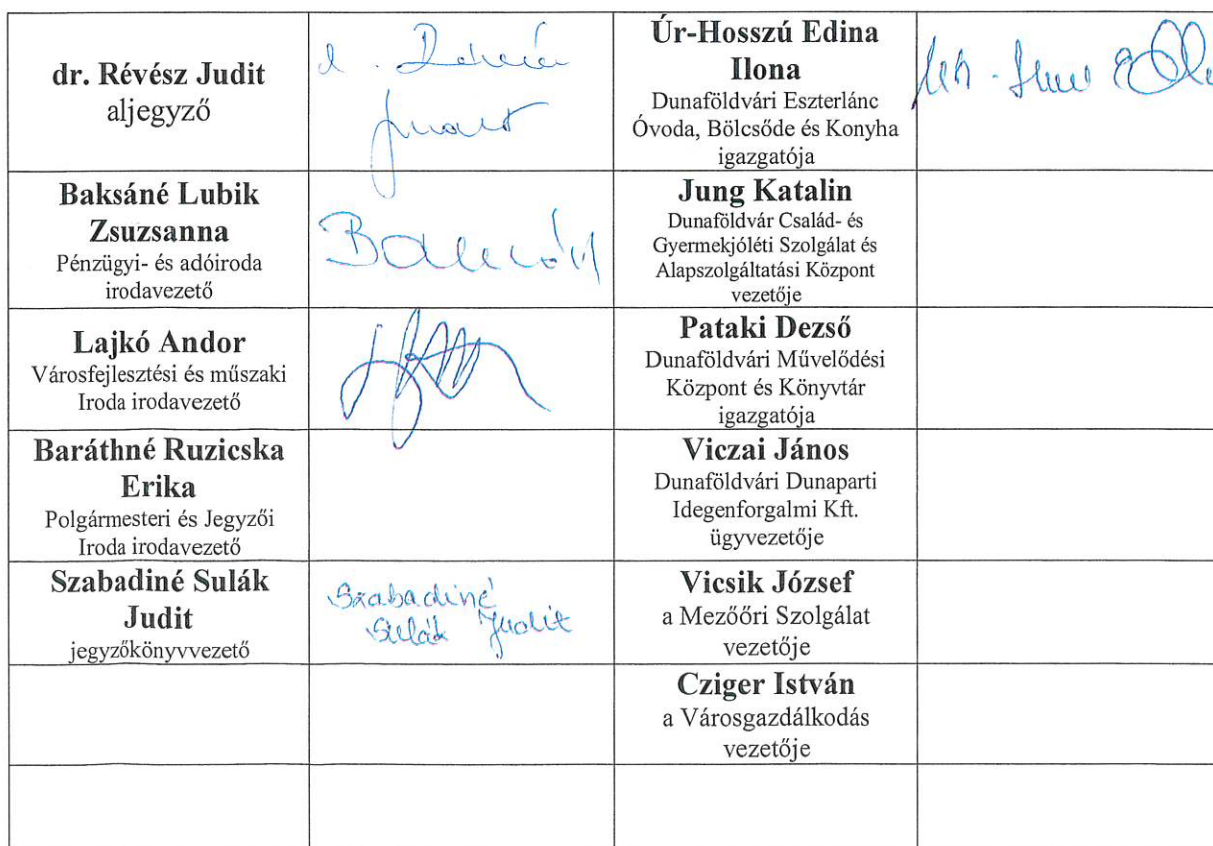 dr. Révész Judit
aljegyző
Úr-Hosszú Edina
Ilona
Dunaföldvári Eszterlánc
Óvoda, Bölcsőde és Konyha
igazgatója
Baksáné Lubik
Zsuzsanna
Pénzügyi- és adóiroda
irodavezető
Jung Katalin
Dunaföldvár Család- és
Gyermekjóléti Szolgálat és
Alapszolgáltatási Központ
vezetője
Lajkó Andor
Városfejlesztési és műszaki
Iroda irodavezető
Pataki Dezső
Dunaföldvári Művelődési
Központ és Könyvtár
igazgatója
Baráthné Ruzicska
Erika
Polgármesteri és Jegyzői
Iroda irodavezető
Viczai János
Dunaföldvári Dunaparti
Idegenforgalmi Kft.
ügyvezetője
Szabadiné Sulák
Judit
jegyzőkönyvvezető
Szabadiné
Sulák Judit
Vicsik József
a Mezőőri Szolgálat
vezetője
Cziger István
a Városgazdálkodás
vezetője